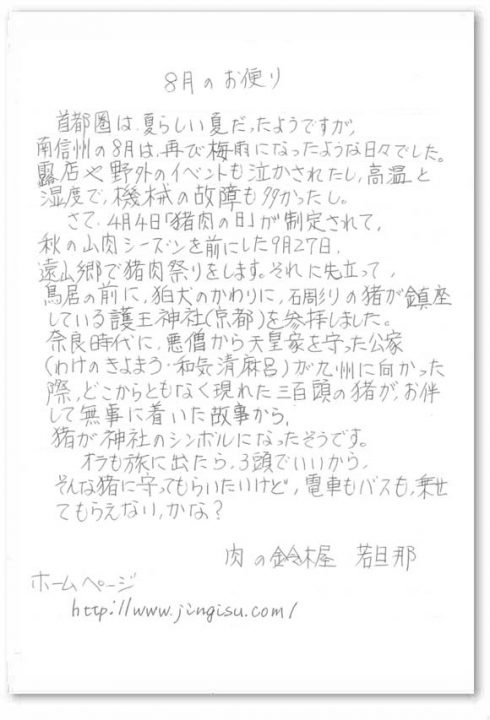 8月のお便り
首都圏は、夏らしい夏だったようですが、
南信州の8月は、再び梅雨になったような日々でした。
露店や野外のイベントも泣かされたし、高温と
湿度で、機械の故障も多かったし。
さて、4月4日「猪肉の日」が制定されて、
秋の山肉シーズンを前にした9月27日、
遠山郷で猪肉祭りをします。それに先立って、
鳥居の前に、狛犬のかわりに、石彫りの猪が鎮座
している護王神社(京都)を参拝しました。
奈良時代に、悪僧から天皇家を守った公家
(わけのきよまろ・和気清麻呂)が九州に向かった
際、どこからともなく現れた三百頭の猪が、お伴
して無事に着いた故事から、
猪が神社のシンボルになったそうです。
オラも旅に出たら、3頭でいいから、
そんな猪に守ってもらいたいけど、電車もバスも、乗せ
てもらえない、かな?
肉の鈴木屋 若旦那
ホームページ
http://www.jingisu.com/